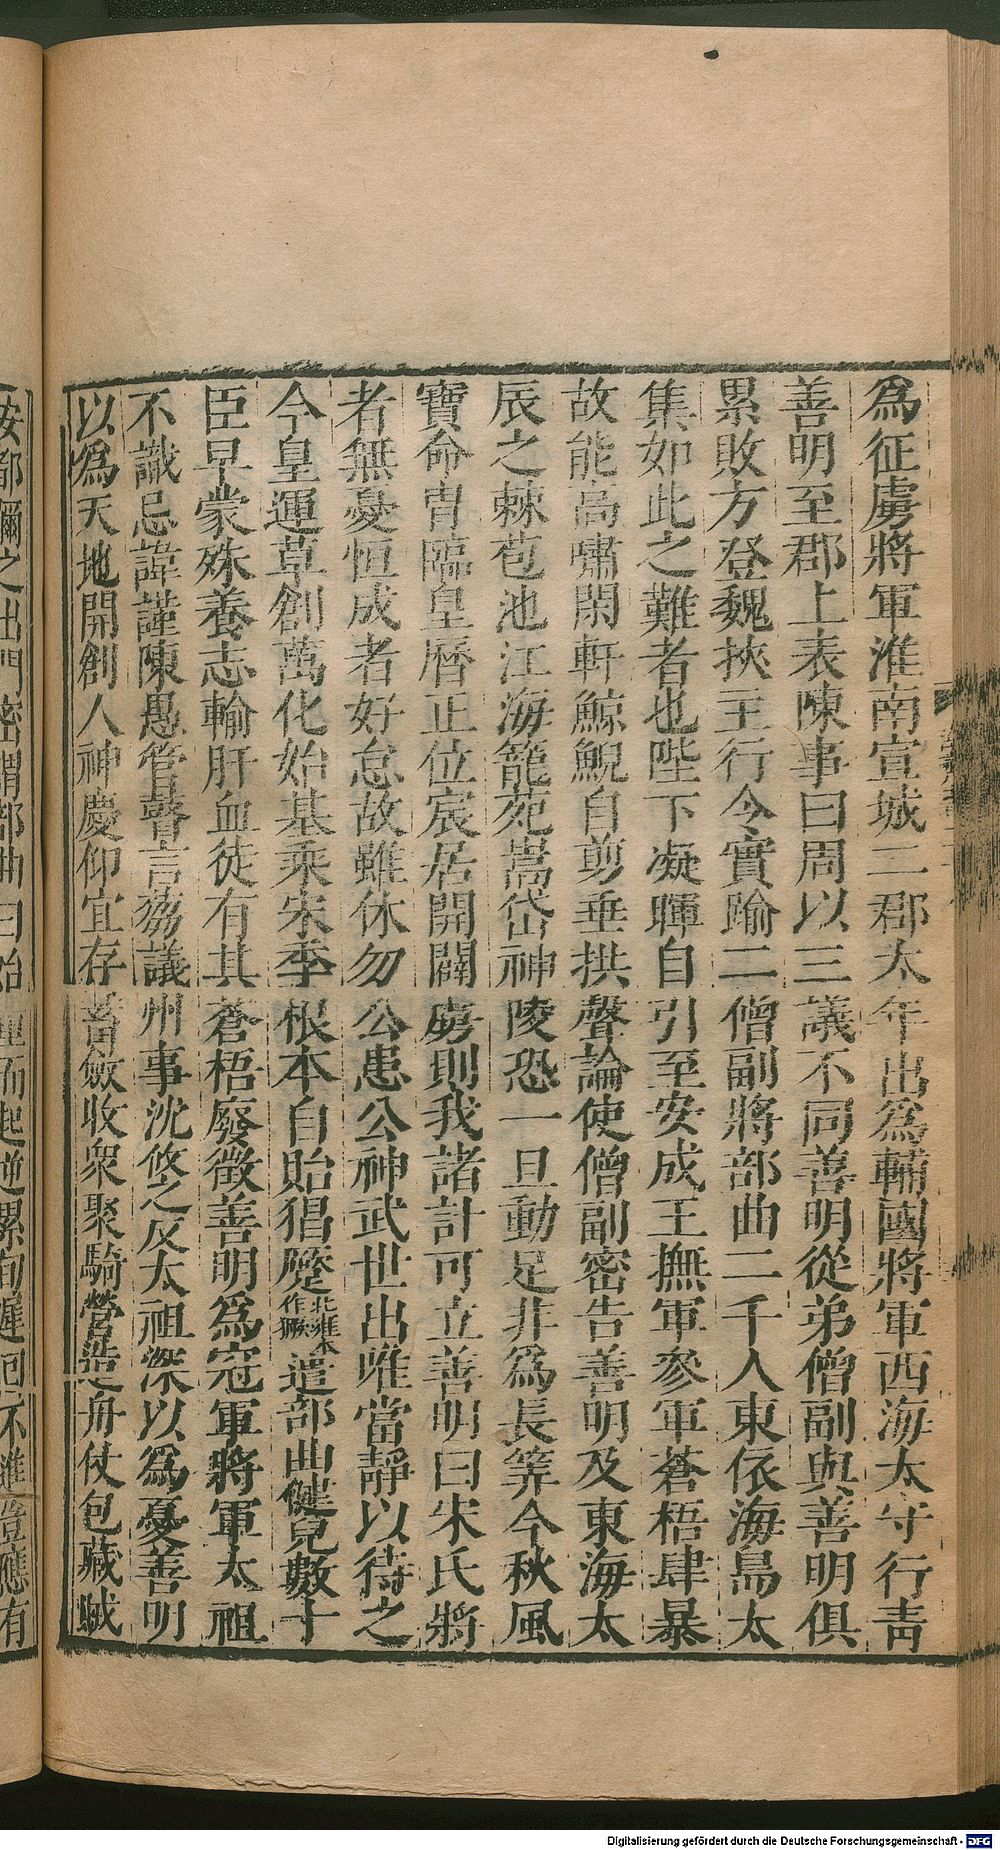 為征虜將軍淮南宣城二郡太年出為輔國將軍西海太守行青
善明至郡上表陳事曰周以三議不同善明從弟僧副與善明俱
累敗方登魏挾主行令實踰二僧副將部曲二千人東依海島太
集如此之難者也陛下凝暉自引至安成王撫軍參軍蒼梧肆暴
故能高嘯閑軒鯨鯢自剪垂拱聲論使僧副密告善明及東海太
辰之棘苞池江海籠苑嵩岱神陵恐一旦動足非為長筭今秋風
寶命冑臨皇曆正位宸居開闢虜則我諸計可立善明曰宋氏將
者無憂恒成者好怠故雖休勿公患公神武世出唯當靜以待之
今皇運草創萬化始基乘宋季根本自貽猖蹷北雍本作獗遣部曲健兒數十
臣早蒙殊養志輸肝血徒有其蒼梧廢徵善明為冠軍將軍太祖
不識忌諱謹陳愚管瞽言芻議州事沈攸之反太祖深以為憂善明
以為天地開創人神慶仰宜存畜斂收眾聚騎營造舟仗包藏賊
安都彌之出門密謂部曲曰始而起逆累旬遲回不進豈應有
Digitalisierung gefördert durch die Deutsche Forschungsgemeinschaft - DFG